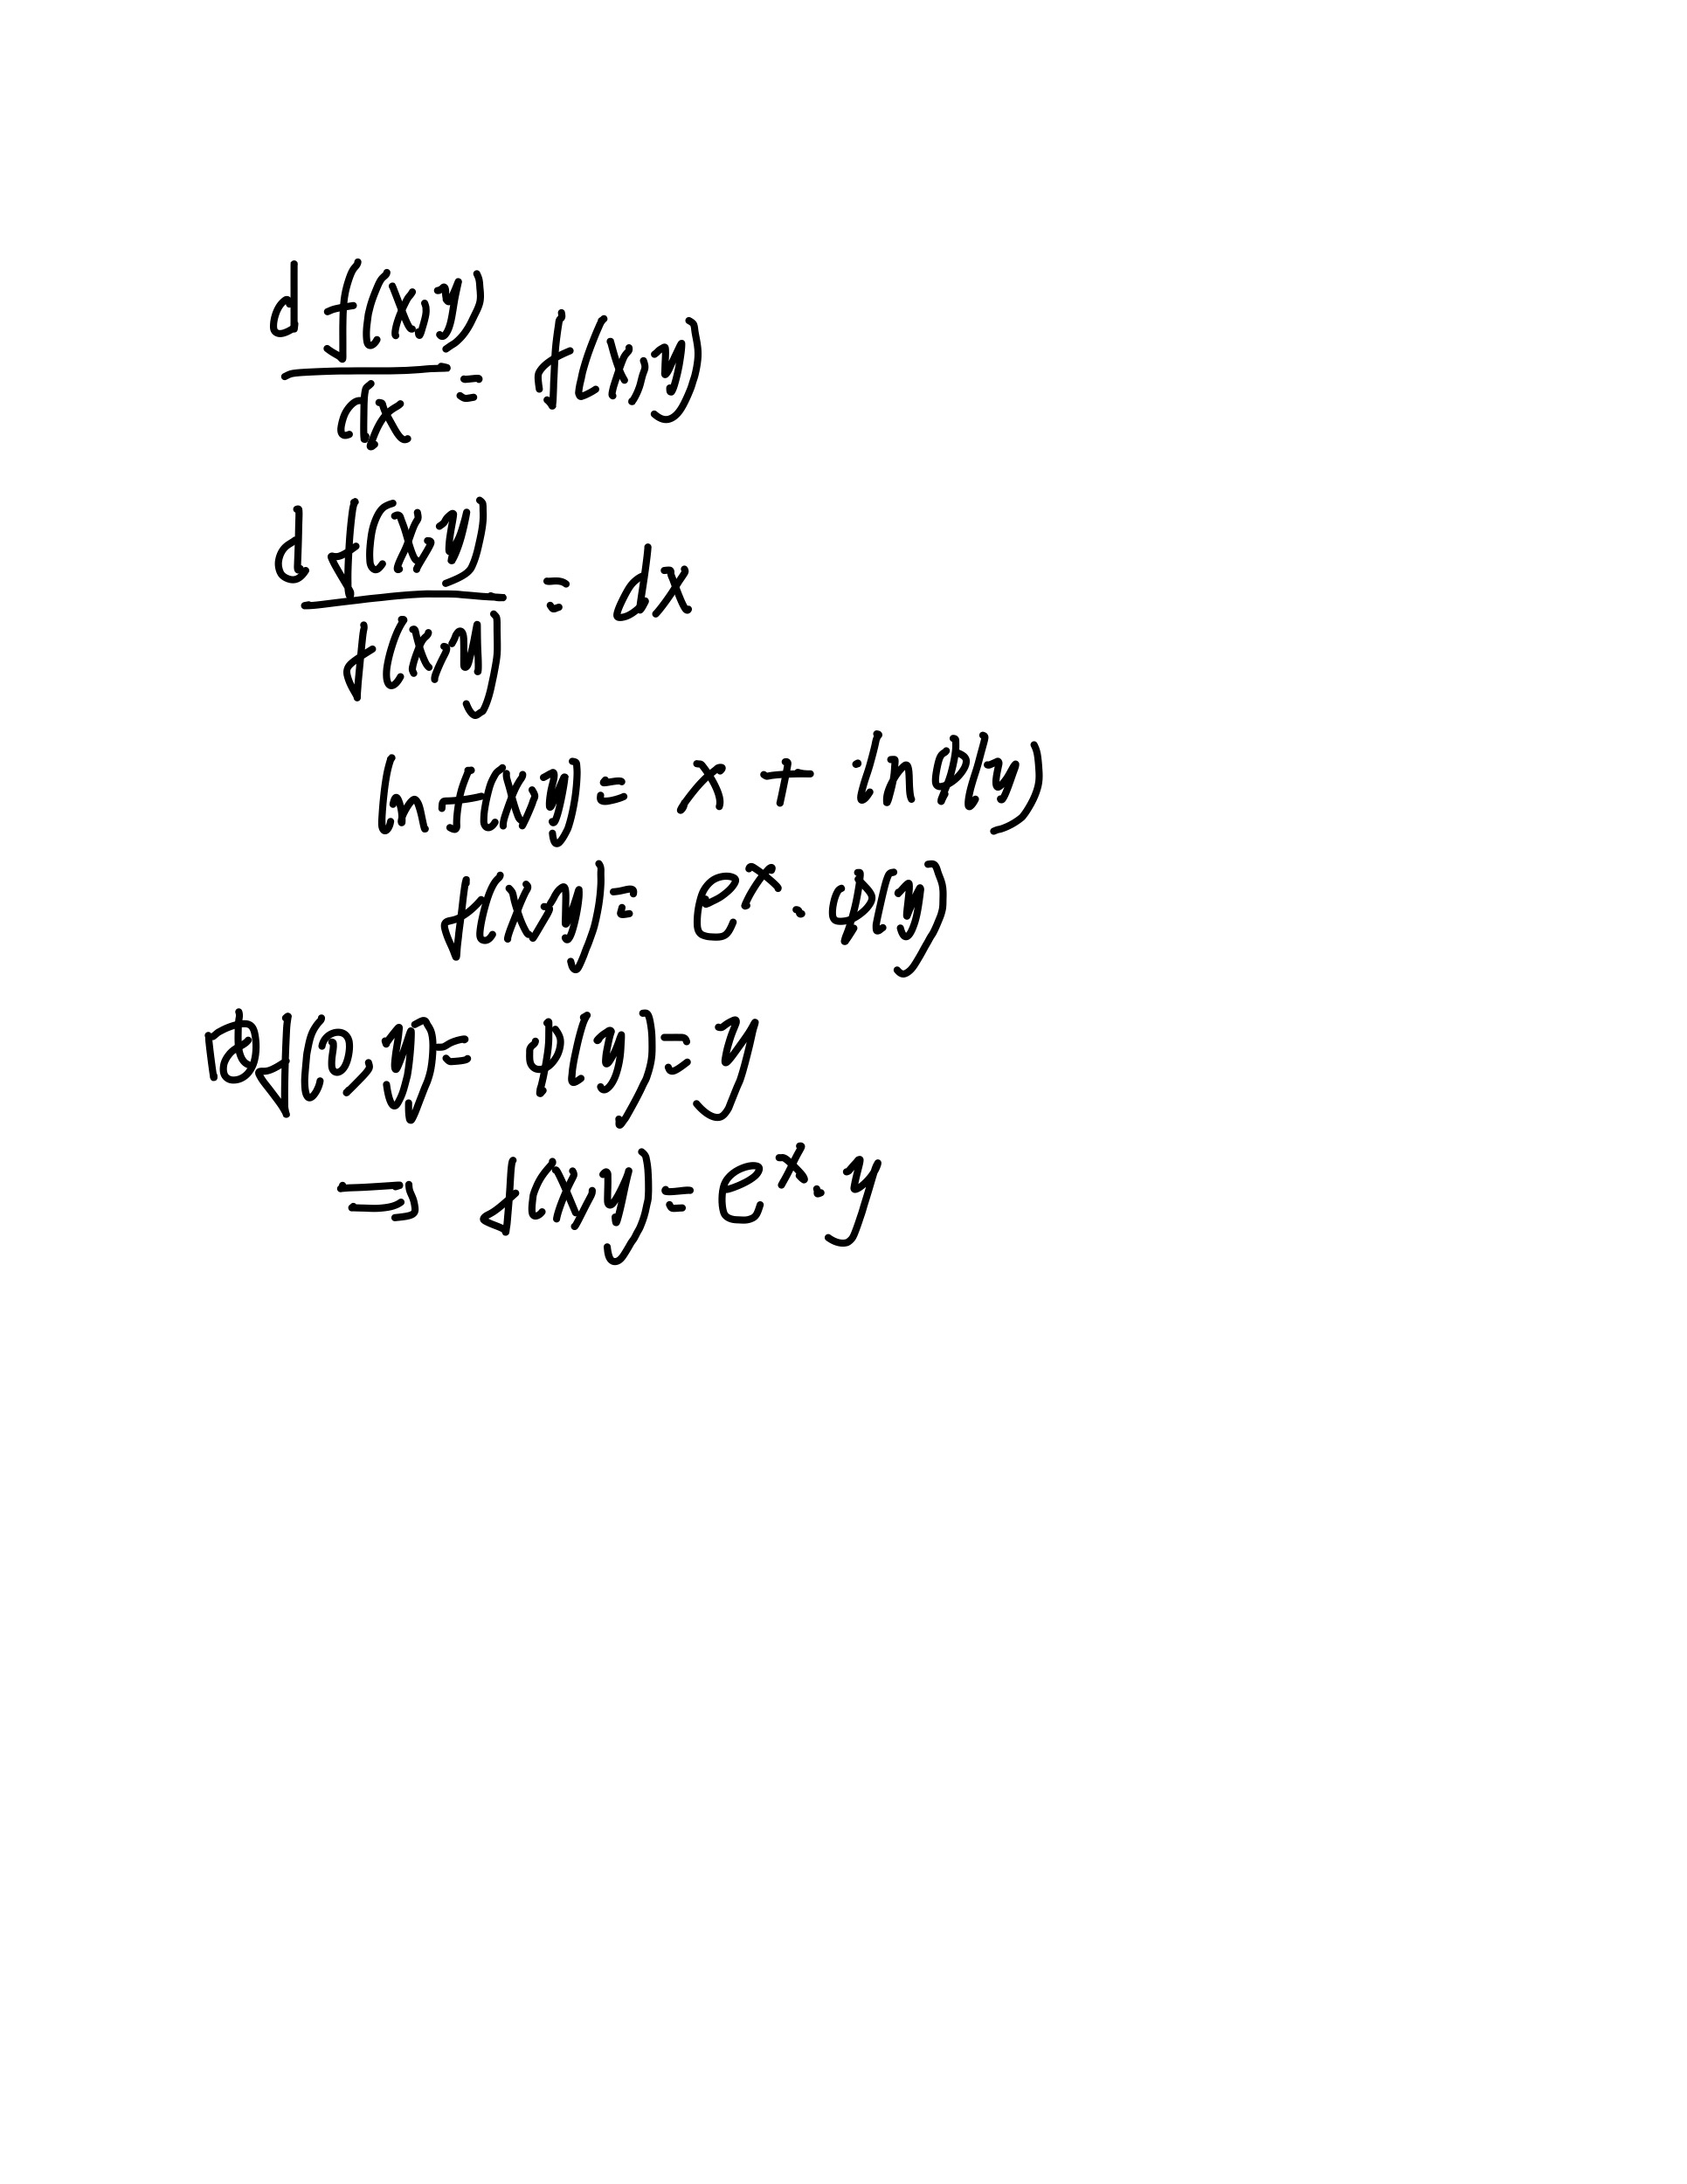 d f(x,y)/dx = f(x,y)
d f(x,y)/f(x,y) = dx
ln f(x,y) = x + ln φ(y)
f(x,y) = e^x · φ(y)
f(0,y) = φ(y) = y
⇒ f(x,y) = e^x · y